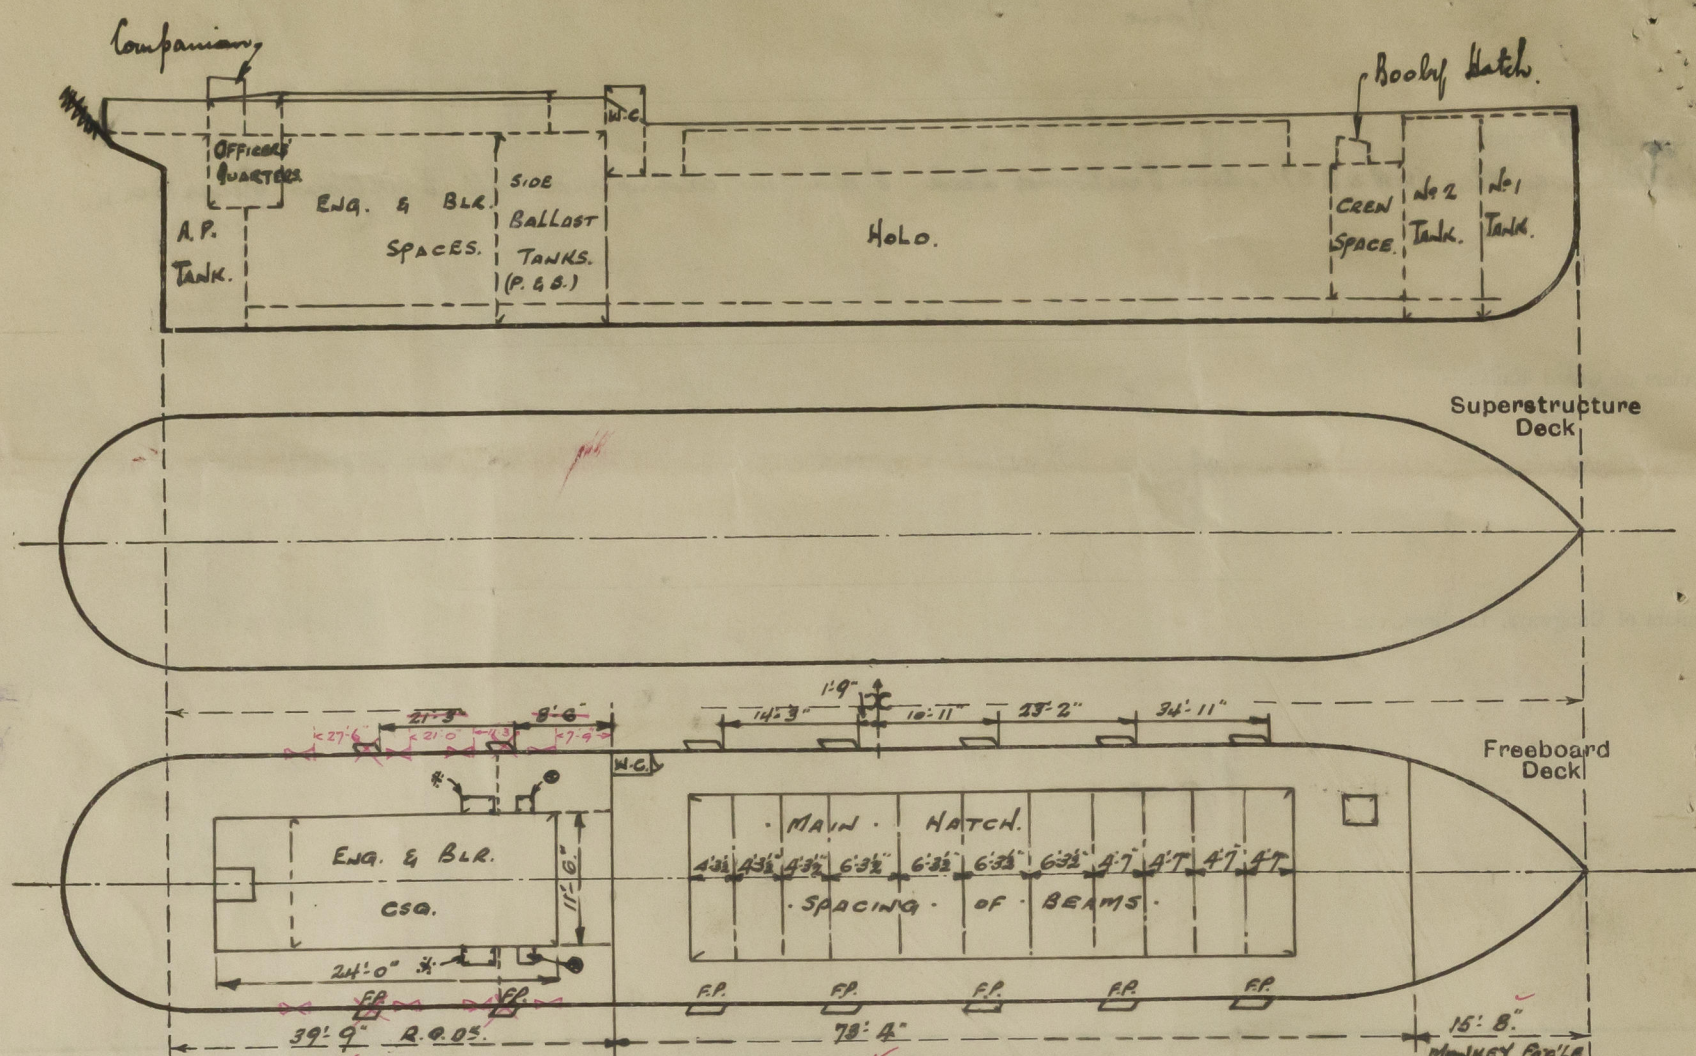 Companion
Booby Hatch.
W.C.
OFFICERS'
QUARTERS.
ENG. & BLR.
SPACES.
SIDE
BALLAST
TANKS.
(P. & S.)
A.P.
TANK.
HOLD.
CREW
SPACE.
No 2
TANK.
No 1
TANK.
Superstructure
Deck
1'-9"
21'-3" 8'-6" 14'-3" 10'-11" 23'-2" 34'-11"
27'-6 21'-0" 7'-9"
W.C.
Freeboard
Deck
· MAIN · HATCH.
4'3½" 4'3½" 4'3½" 6'-3½" 6'-3½" 6'-3½" 6'-3½" 4'-7" 4'-7" 4'-7" 4'-7"
· SPACING · OF · BEAMS ·
ENG. & BLR.
CSG.
11'-6"
24'-0"
F.P. F.P. F.P. F.P. F.P. F.P. F.P.
39'-9" R.Q.DK. 73'-4" 15'-8"
MONKEY FOC'LE